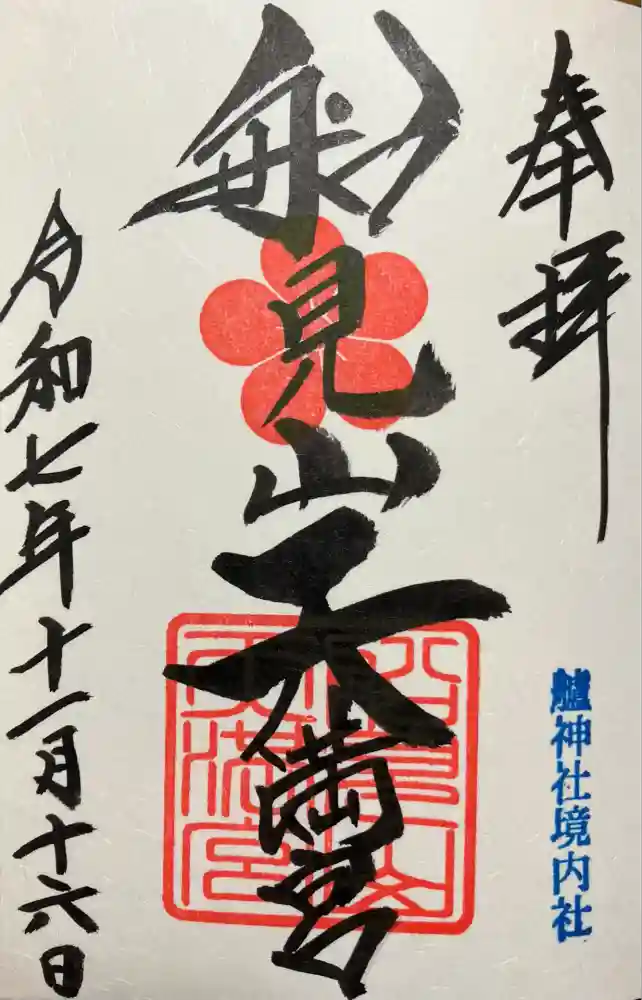 奉拝
艫神社境内社
船見山天満宮
令和七年十一月十六日